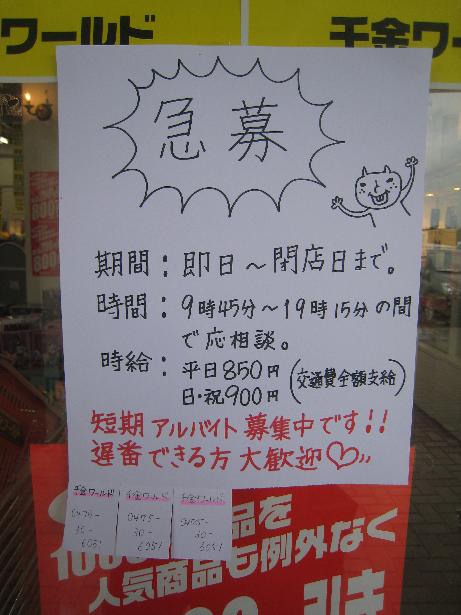 ワールド
千金ワー
急募
期間：即日～閉店日まで。
時間：9時45分～19時15分の間
で応相談。
時給：平日850円
日・祝900円
（交通費全額支給）
短期アルバイト募集中です!!
遅番できる方大歓迎♡
千金ワールド
0475-
30-
6051
千金ワールド
0475-
30-
6051
千金ワールド
0475-
30-
6051
品を
人気商品も例外なく
引き